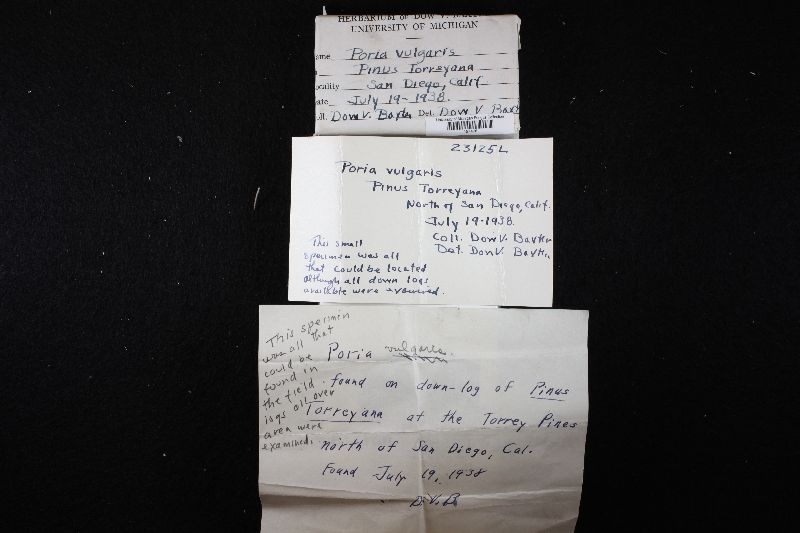 HERBARIUM OF DOW V.
UNIVERSITY OF MICHIGAN
ame Poria vulgaris
Pinus Torreyana
ocality San Diego, Calif
ate July 19-1938.
oll. Dow V. Baxter Det. Dow V. Baxt
23125L
Poria vulgaris
Pinus Torreyana
North of San Diego, Calif.
July 19-1938.
Coll. Dow V. Baxter
Det. Dow V. Baxter
This small
specimen was all
that could be located
although all down logs
available were examined.
This specimin
was all that
could be
found in
the field.
logs all over
area were
examined.
Poria vulgaris.
found on down-log of Pinus
Torreyana at the Torrey Pines
north of San Diego, Cal.
Found July 19, 1938
D.V.B.